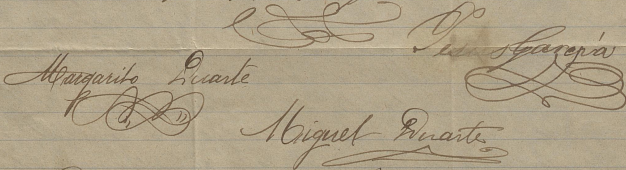 García
Margarito Duarte
Miguel Duarte